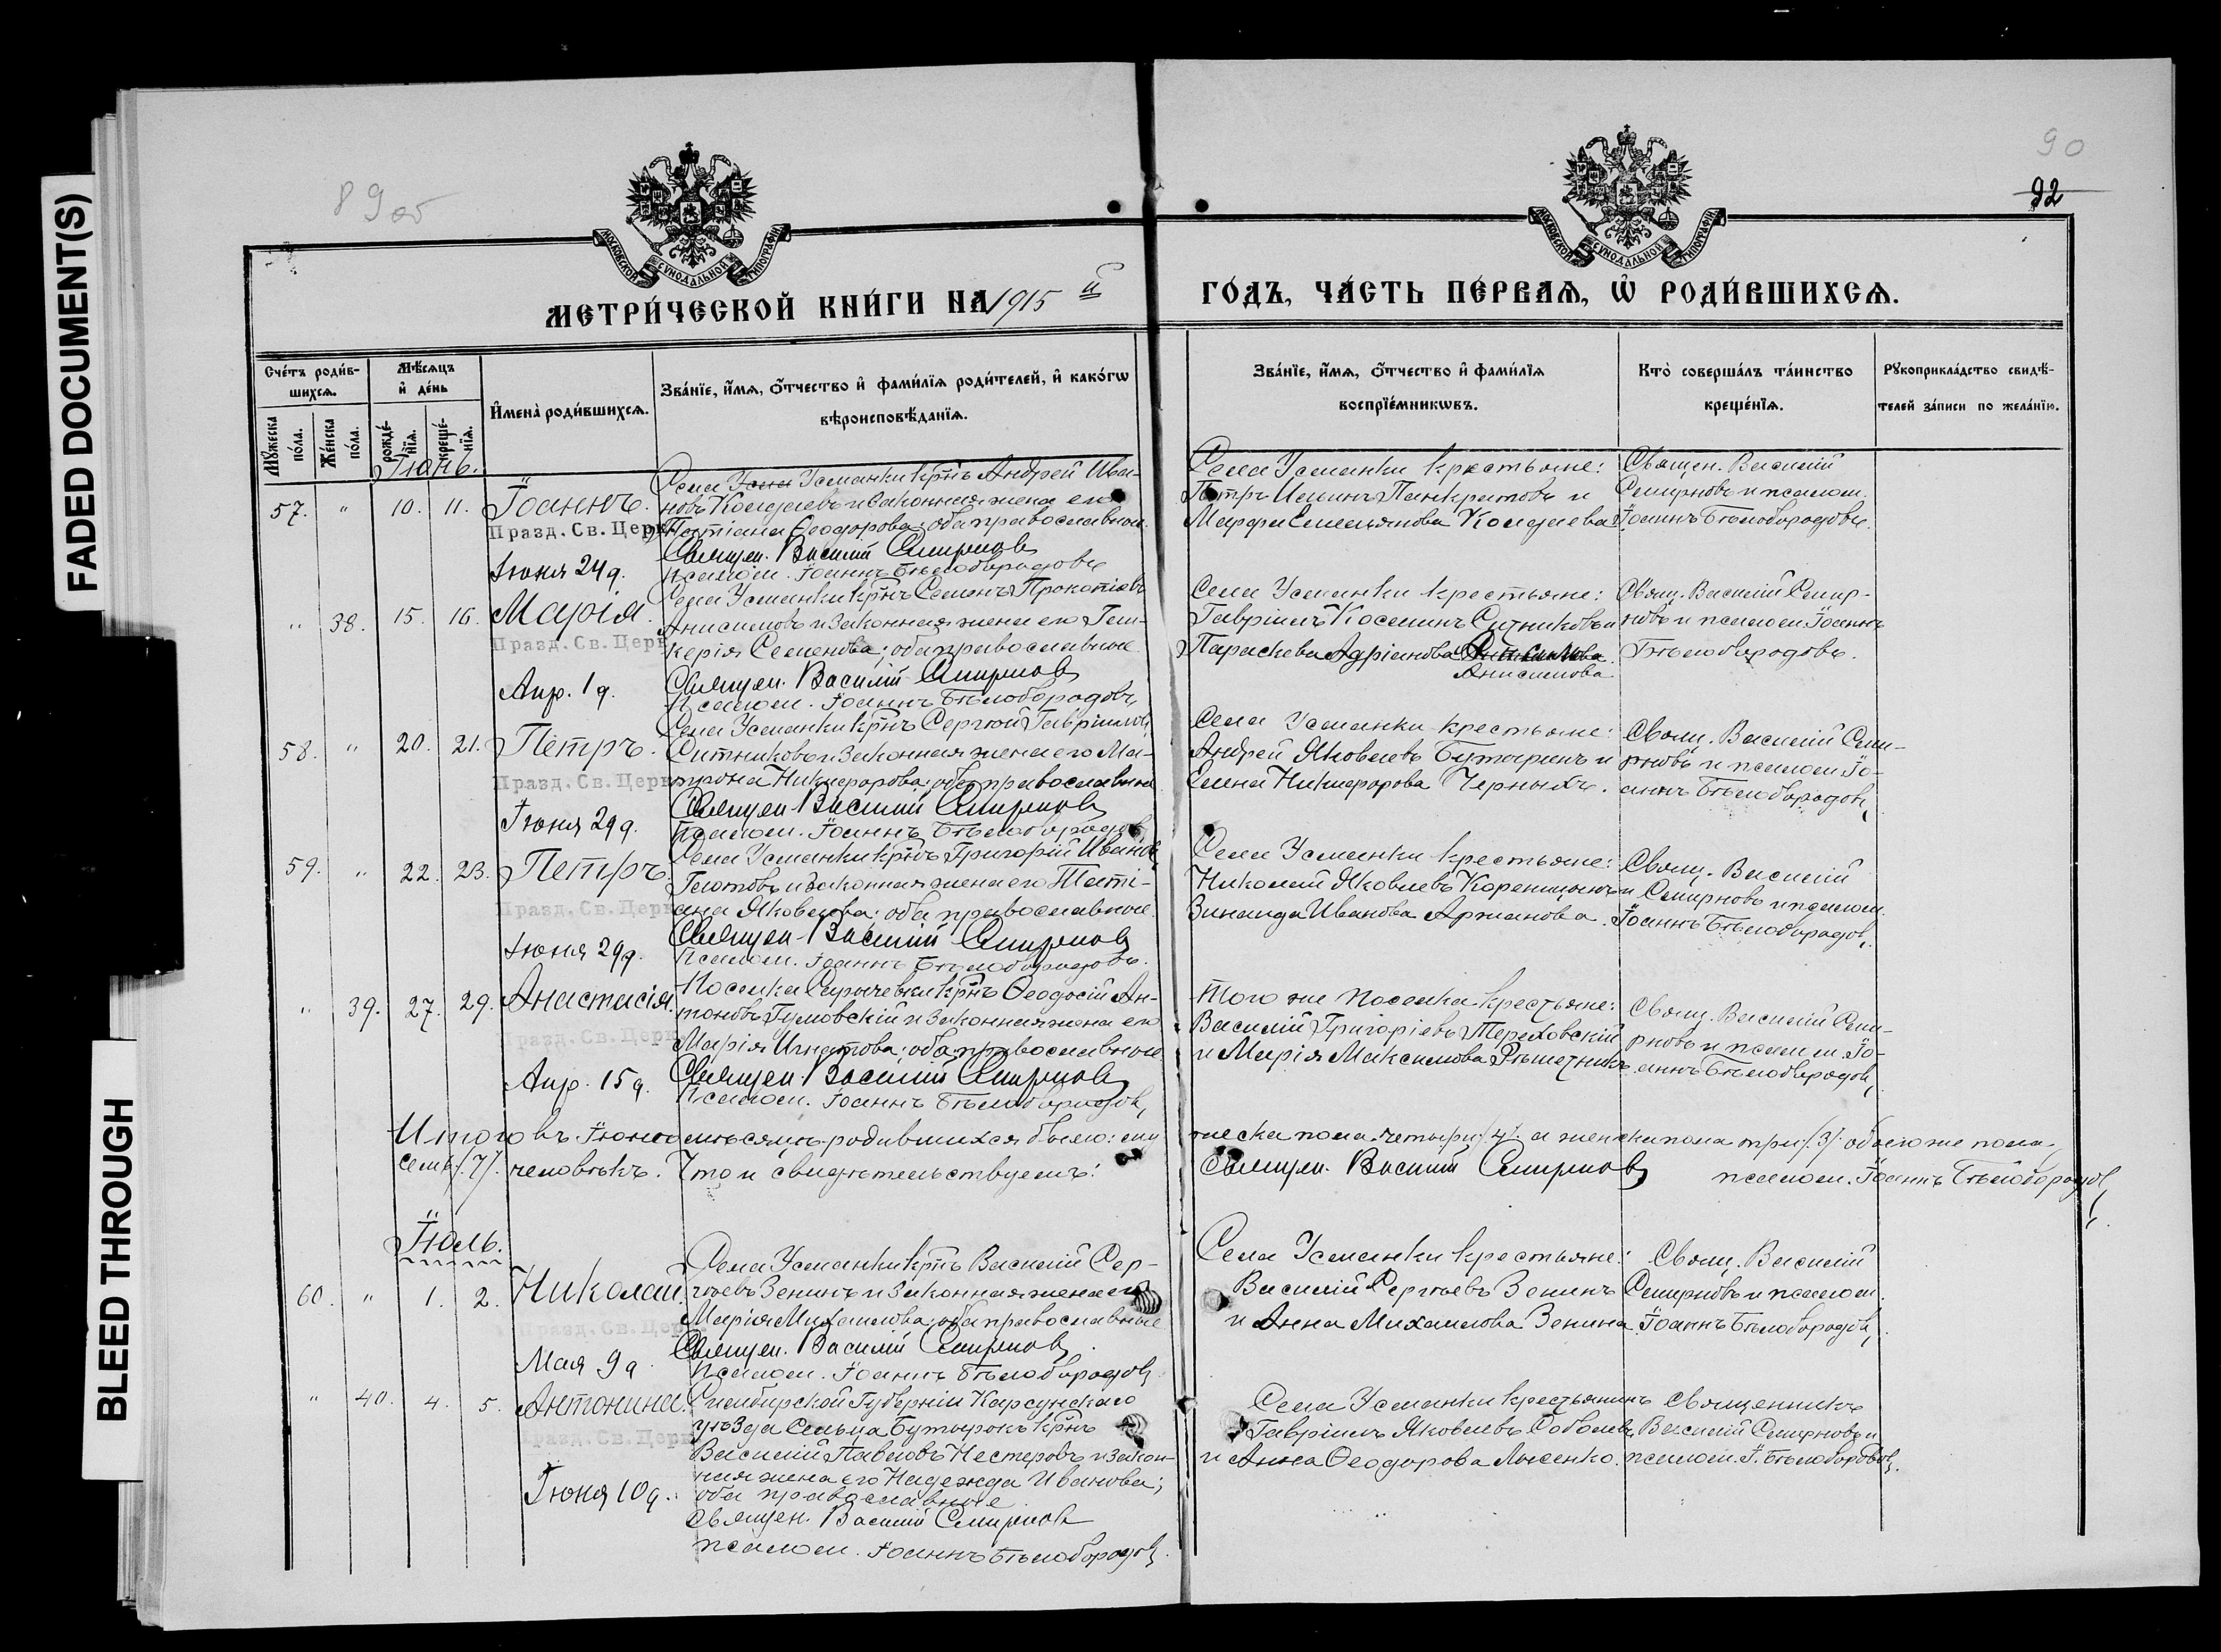 FADED DOCUMENT(S)
BLEED THROUGH
89 об
90
92
МОСКОВСКОЙ СѴНОДАЛЬНОЙ ТИПОГРАФІИ
МОСКОВСКОЙ СѴНОДАЛЬНОЙ ТИПОГРАФІИ
МЕТРИ́ЧЕСКОЙ КНИ́ГИ НА 1915 й ГО́ДЪ, ЧА́СТЬ ПЕ́РВАѦ, Ѡ҆ РОДИ́ВШИХСѦ.
Сче́тъ роди́в-
шихсѧ.
Мѣ́сѧцъ
и҆ де́нь
Мꙋ́жеска по́ла.
Же́нска по́ла.
рожде́-нїѧ.
креще́-нїѧ.
И҆мена̀ роди́вшихсѧ.
Зва́нїе, и҆́мѧ, ѻ҆́тчество и҆ фами́лїѧ роди́телей, и҆ како́гѡ
вѣроисповѣ́данїѧ.
Зва́нїе, и҆́мѧ, ѻ҆́тчество и҆ фами́лїѧ
воспрїе́мникѡвъ.
Кто̀ соверша́лъ та́инство
креще́нїѧ.
Рꙋкоприкла́дство свидѣ́-
телей за́писи по жела́нїю.
Іюнь.
57. " 10. 11. Іоаннъ.
Празд. Св. Церк
Іюня 24 д.
Села Усманки крнъ Андрей Ива-
новъ Колдаевъ и законная жена его
Татіана Ѳеодорова; оба православные.
Священ. Василій Смирновъ
псалом. Іоаннъ Бѣлобородовъ
Села Усманки крестьяне:
Петръ Ильинъ Панкратовъ и
Марфа Емельянова Колдаева.
Священ. Василій
Смирновъ и псалом.
Іоаннъ Бѣлобородовъ.
" 38. 15. 16. Марія.
Празд. Св. Церк
Апр. 1 д.
Села Усманки крнъ Семенъ Прокопіевъ
Анисимовъ и законная жена его Гли-
керія Семенова; оба православные
Священ. Василій Смирновъ
псалом. Іоаннъ Бѣлобородовъ
Села Усманки крестьяне:
Гавріилъ Косминъ Ситниковъ и
Параскева Адріанова
Анисимова
Свящ. Василій Смир-
новъ и псалом Іоаннъ
Бѣлобородовъ.
58. " 20. 21. Петръ.
Празд. Св. Церк
Іюня 29 д.
Села Усманки крнъ Сергѣй Гавріиловъ
Ситниковъ и законная жена его Ма-
трона Никифорова; оба православные
Священ Василій Смирновъ
псалом. Іоаннъ Бѣлобородовъ
Села Усманки крестьяне:
Андрей Яковлевъ Бутыринъ и
Елена Никифорова Черныхъ.
Свящ. Василій Сми-
рновъ и псалом Іо-
аннъ Бѣлобородовъ
59. " 22. 23. Петръ.
Празд. Св. Церк
Іюня 29 д.
Села Усманки крнъ Григорій Ивановъ
и законная жена его Тати-
ана Яковлева; оба православные.
Священ. Василій Смирновъ
псалом. Іоаннъ Бѣлобородовъ.
Села Усманки крестьяне:
Николай Яковлевъ и
Зинаида Иванова Аржанова.
Свящ. Василій
Смирновъ и псалом.
Іоаннъ Бѣлобородовъ.
" 39. 27. 29. Анастасія.
Празд. Св. Церк
Апр. 15 д.
Поселка крнъ Ѳеодосій Ан-
тоновъ Гумовскій и законная жена его
Марія Игнатова; оба православные
Священ. Василій Смирновъ
псалом. Іоаннъ Бѣлобородовъ
Того же поселка крестьяне:
Василій Григоріевъ Тереховскій
и Марія Максимова
Свящ. Василій Сми-
рновъ и псалом Іо-
аннъ Бѣлобородовъ
Итого въ Іюнѣ мѣсяцѣ родившихся было: му жеска пола четыри /4/ а женска пола три /3/ обоего же пола
семь /7/ человѣкъ. Что и свидѣтельствуемъ: Священ. Василій Смирновъ псалом. Іоаннъ Бѣлобородовъ
Іюль.
60. " 1. 2. Николай.
Празд. Св. Церк.
Мая 9 д.
Села Усманки крнъ Василій Сер-
гѣевъ Зенинъ и законная жена его
Марія Михаилова; оба православные
Священ. Василій Смирновъ.
псалом. Іоаннъ Бѣлобородовъ
Села Усманки крестьяне:
Василій Сергѣевъ Зенинъ
и Анна Михаилова Зенина
Свящ. Василій
Смирновъ и псалом.
Іоаннъ Бѣлобородовъ.
" 40. 4. 5. Антонина.
Празд. Св. Церк
Іюня 10 д.
Симбирской Губерніи Карсунскаго
уѣзда Сельца Бутырокъ крнъ
Василій Павловъ Нестеровъ и закон-
ная жена его Надежда Иванова;
оба православные
Священ. Василій Смирновъ
псалом. Іоаннъ Бѣлобородовъ.
Села Усманки крестьянинъ
Гавріилъ Яковлевъ Соболевъ
и Анна Ѳеодорова Лысенко.
Священникъ
Василій Смирновъ и
псалом. І. Бѣлобородовъ.